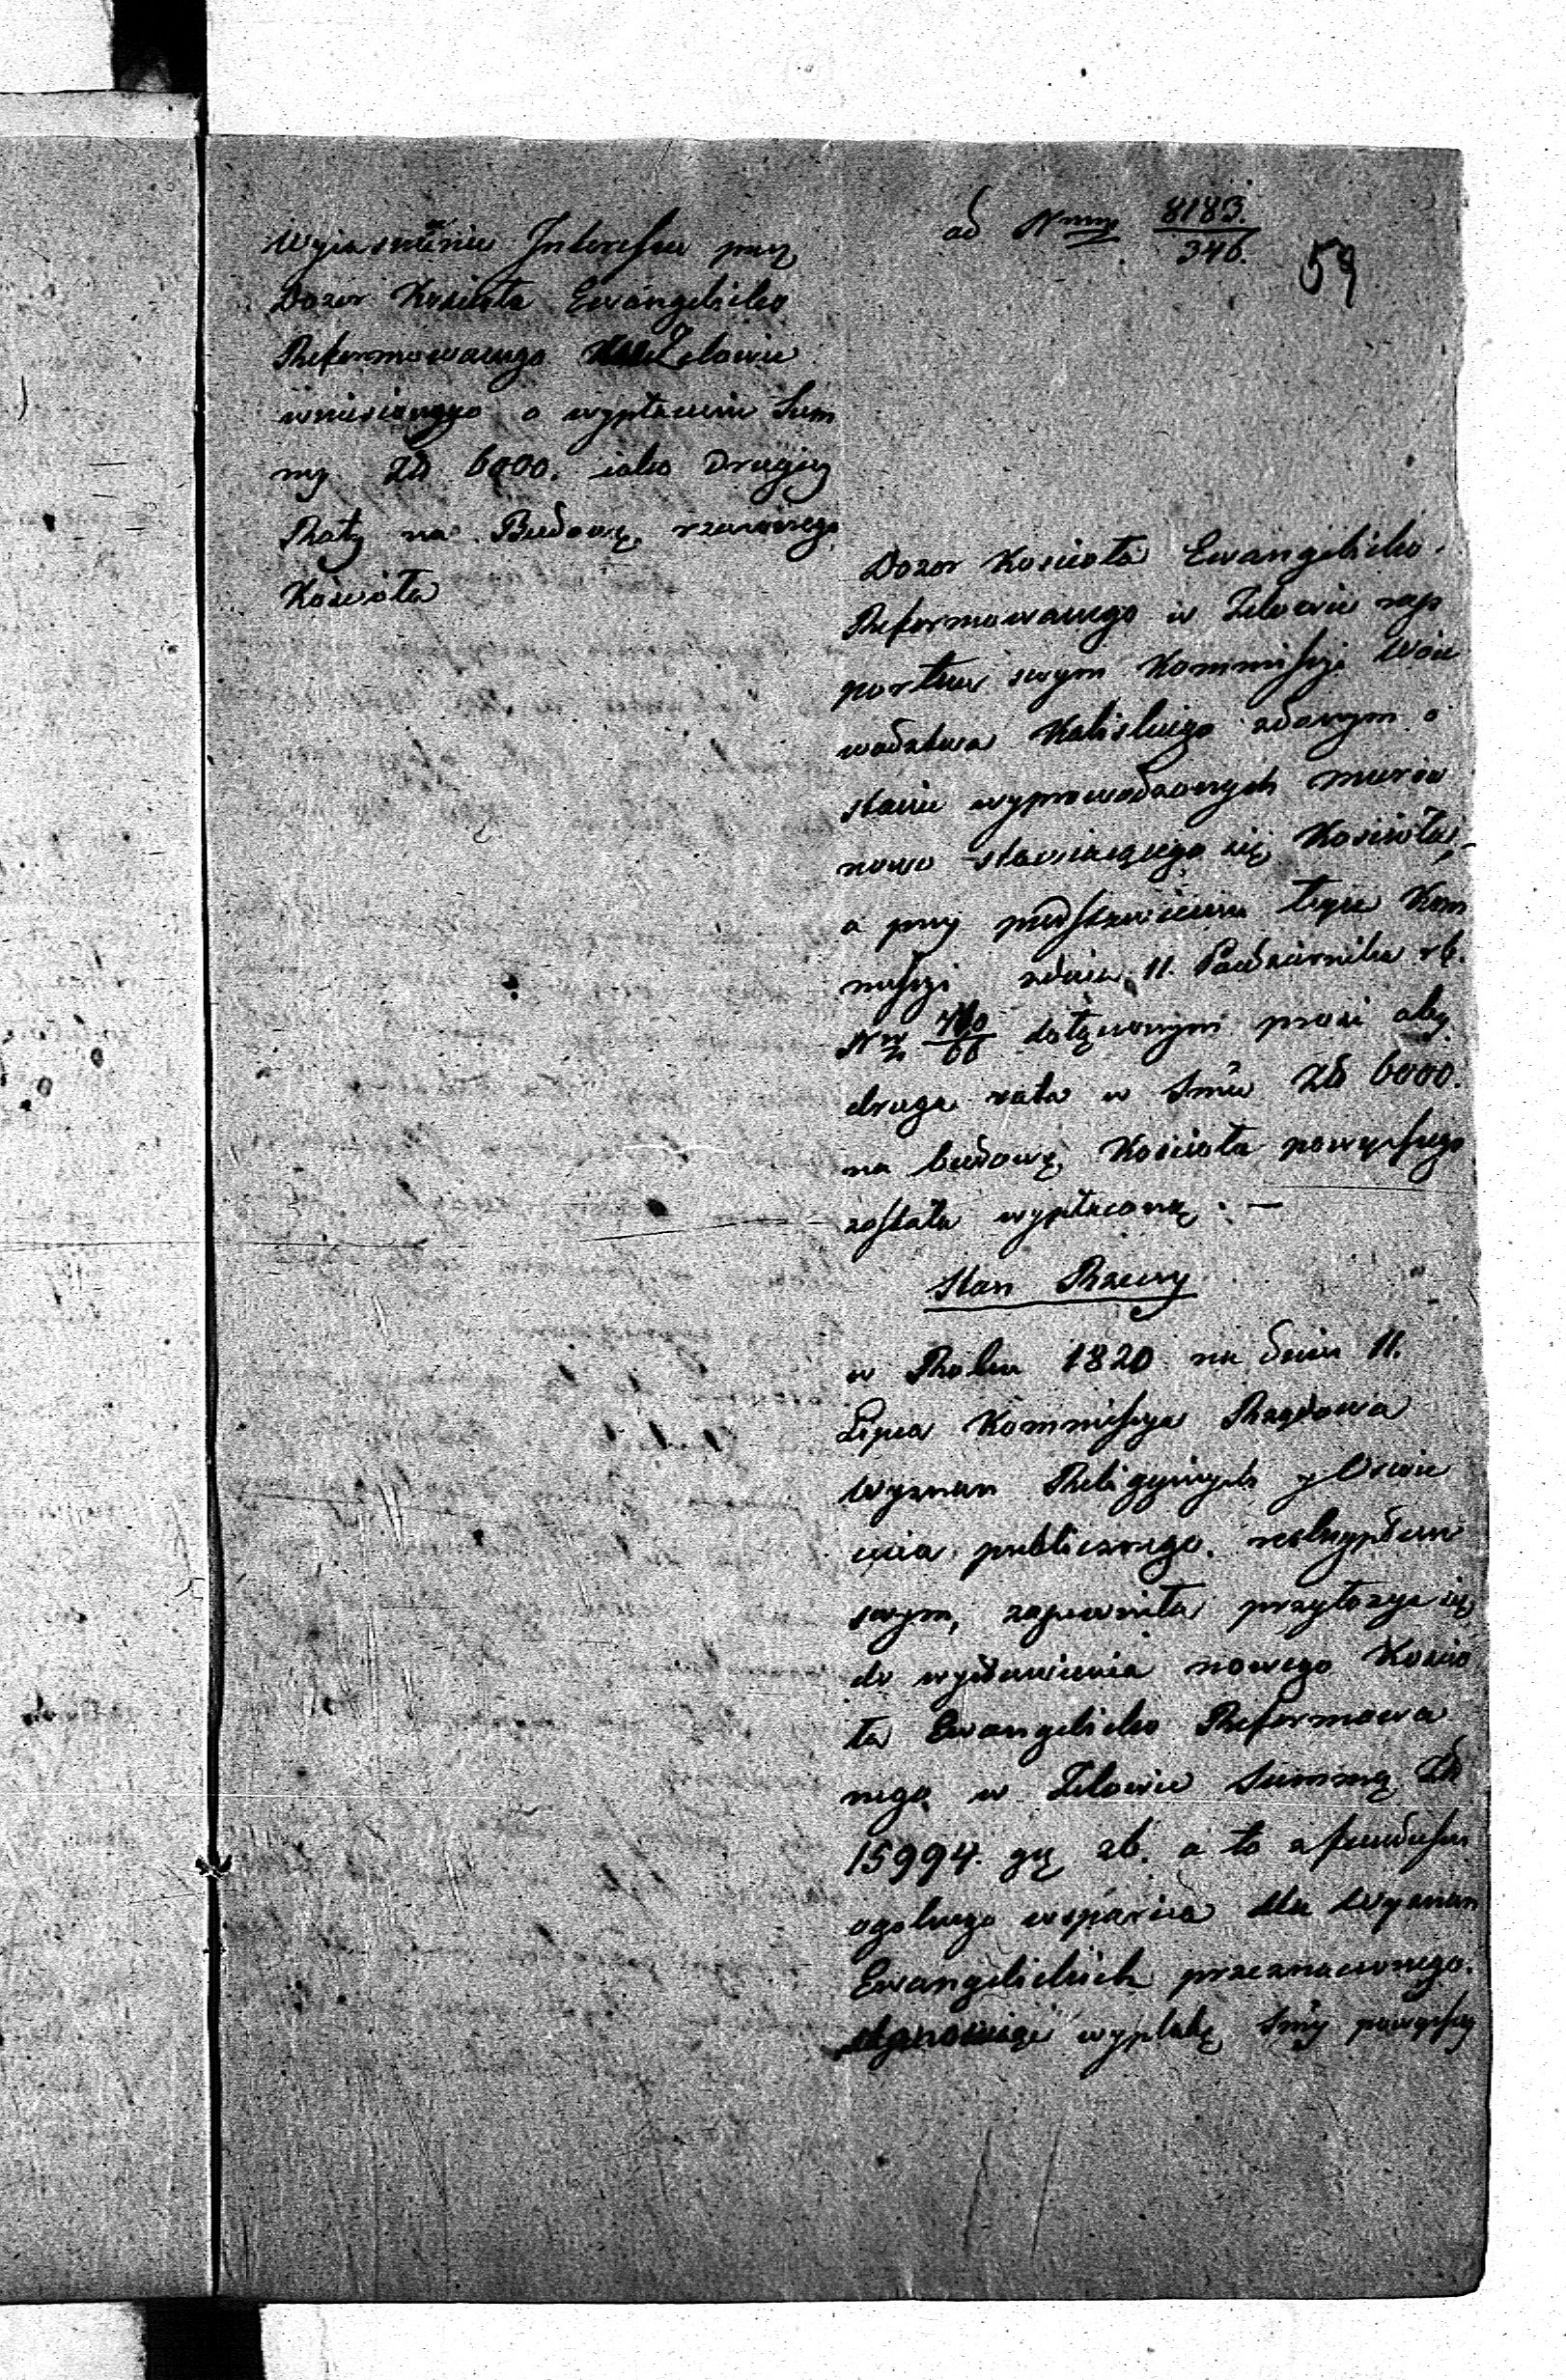 ad Nrum 8183./346.
59
Wyiasnienie Interessu przez
Dozor Kościoła Ewangelicko
Reformowanego Zelowie
wniesionego o wypłacenie Sum
my Zł 6000. iako drugiey
Raty na Budowę rzeczonego
Kościoła
Dozor Kościoła Ewangelicko
Reformowanego w Zelowie rap
portem swym Kommissyi Woie
wodztwa Kaliskiego zdanym o
stanie wyprowadzonych murów
nowo stawiaiącego się Kościoła,
a przy przedstawieniu teyże Kom
missyi z dnia 11. Października rb.
Nro dołączonym prosi aby
druga rata w Smie Zł 6000.
na budowę Kościoła powyższego
została wypłaconą. —
Stan Rzeczy
w Roku 1820 na dniu 11.
Lipca Kommissya Rządowa
Wyznan Religiynych y Oswie
cenia publicznego. reskryptem
swym, zapewniła przyłożyc się
do wystawienia nowego Kościo
ła Ewangelicko Reformowa
nego w Zelowie Summą Zł
15994. gr 26. a to z funduszu
ogolnego wsparcia dla Wyznan
Ewangelickich przeznaczonego.
wypłatę Smy powyższey